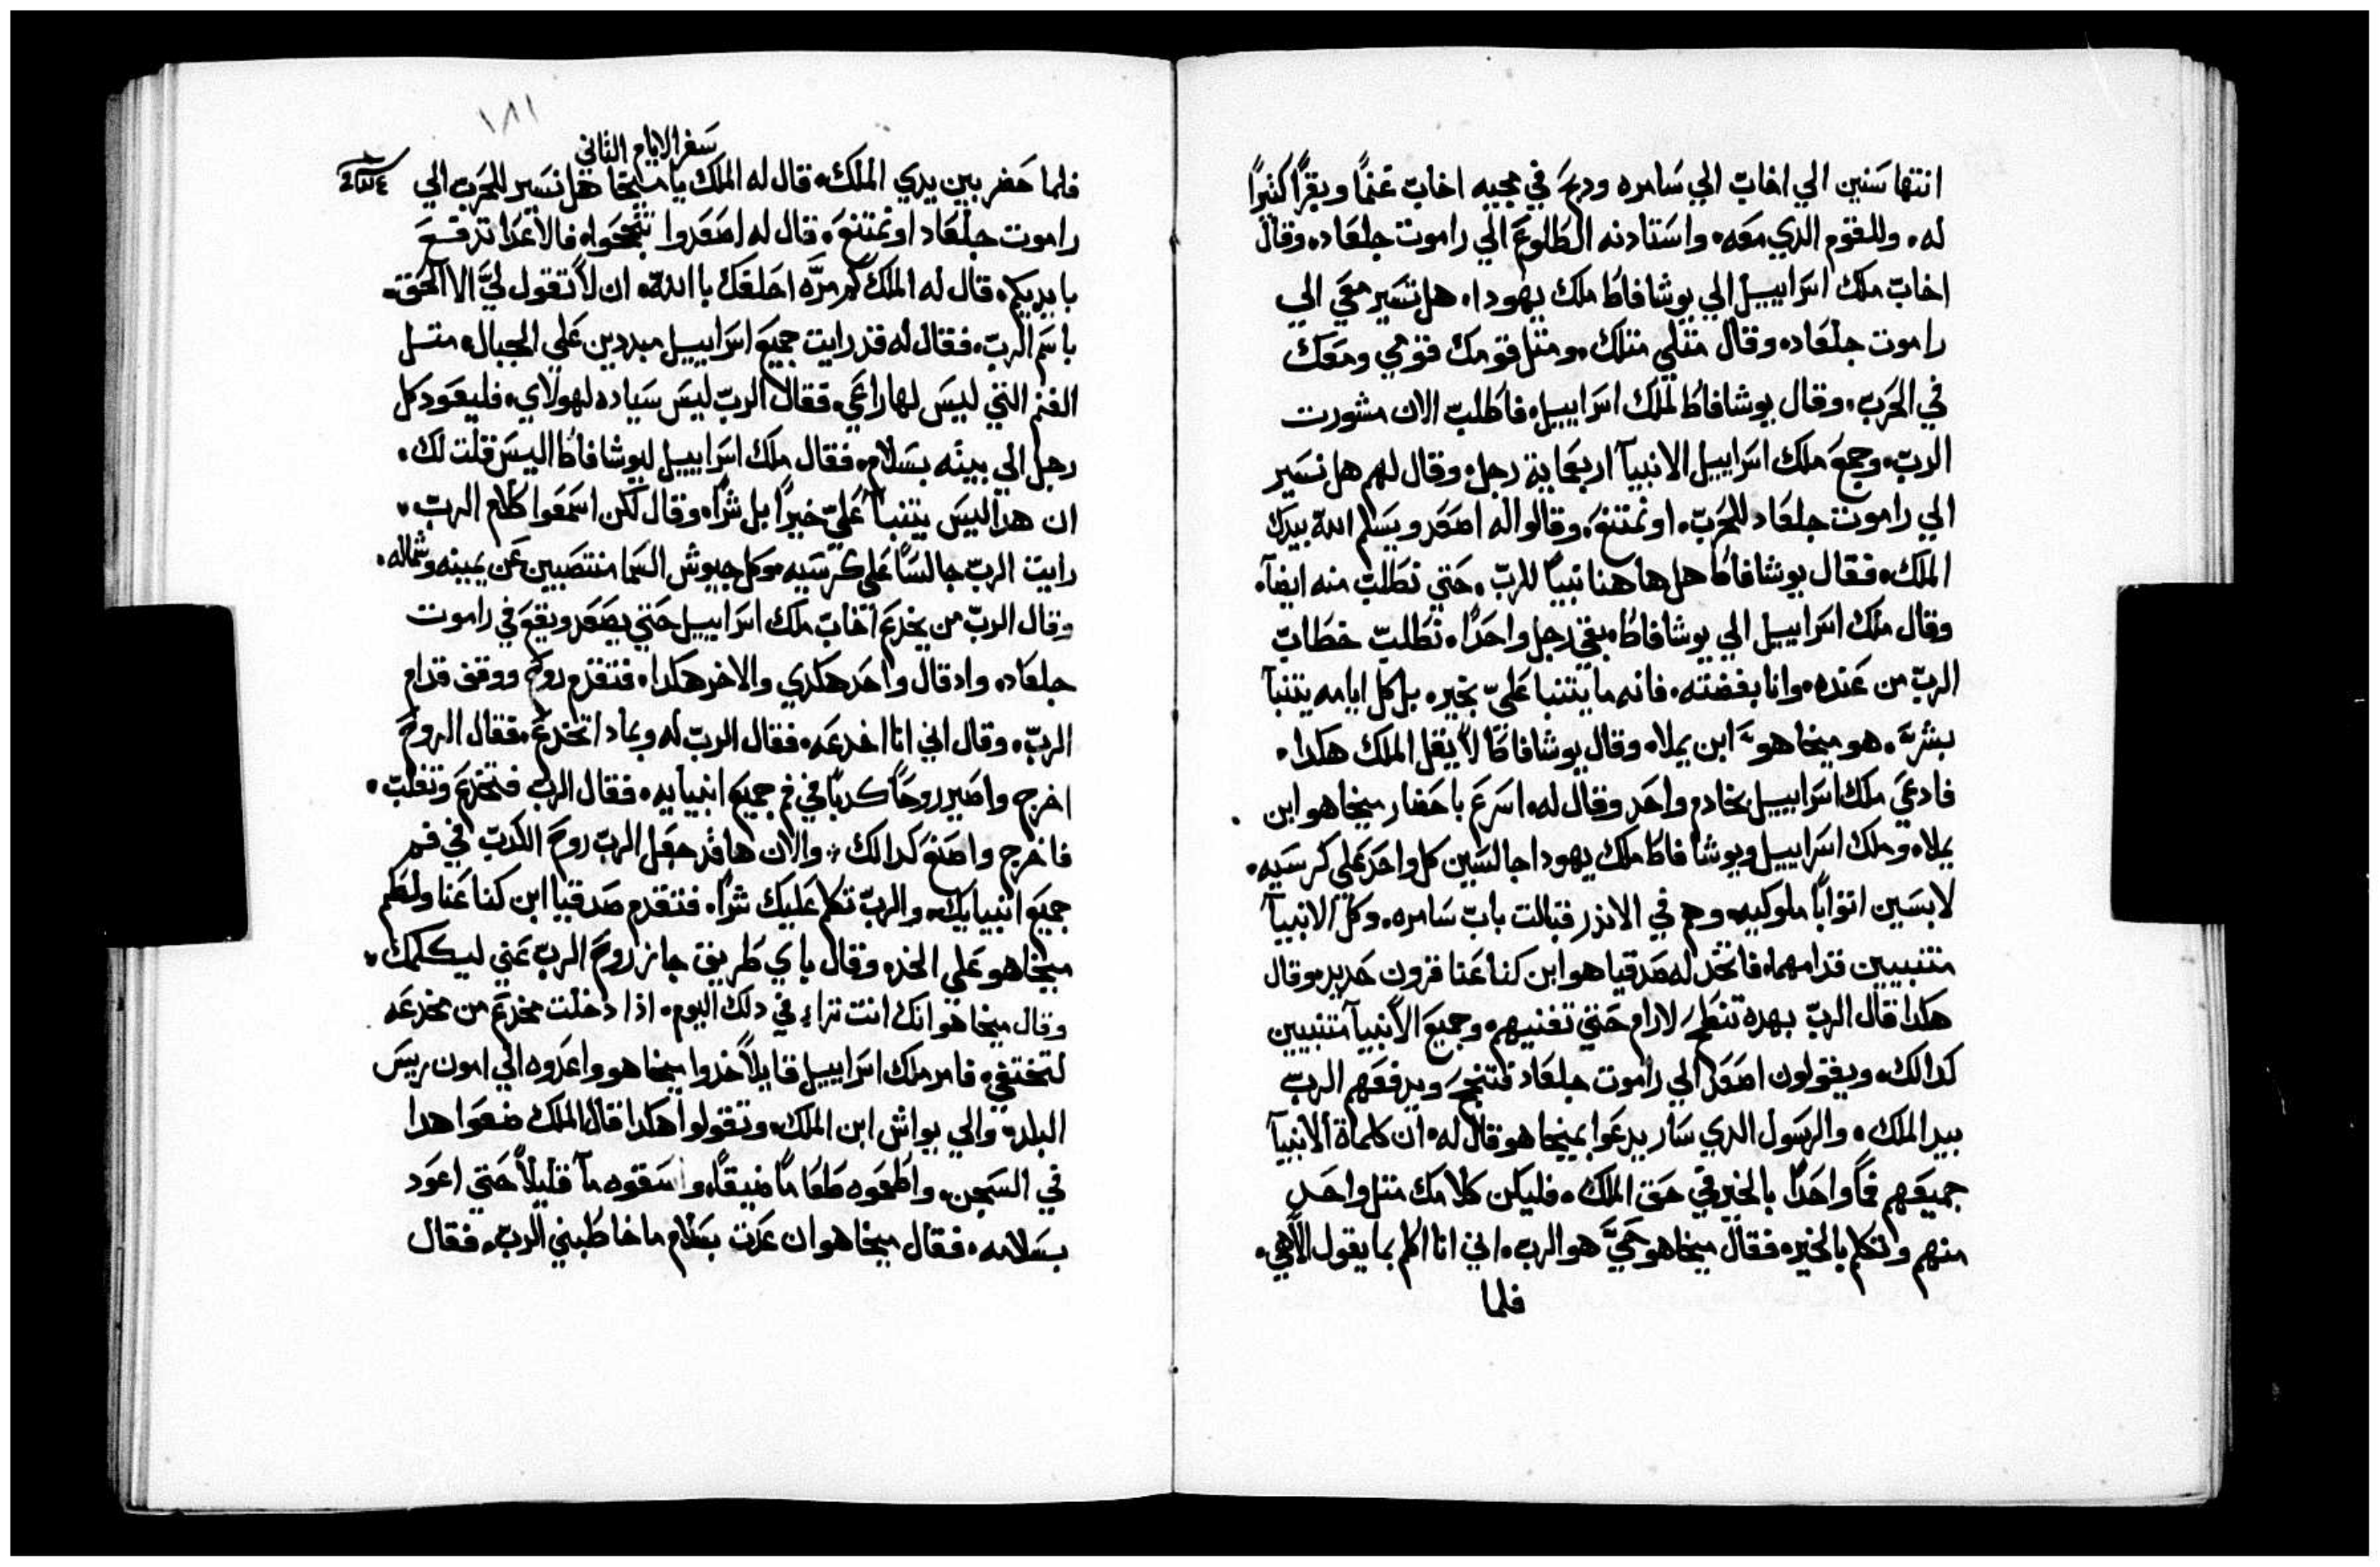 انتها سنين الي اخاب الي سامره ودبح في مجيه اخاب غنماً وبقراً كثيراً
له، وللقوم الدي معه، واستادنه الطلوع الي راموت جلعاد، وقال
اخاب ملك اسراييل الي يوشافاط ملك يهودا، هل تسير معي الي
راموت جلعاد، وقال مثلي مثلك، ومثل قومك قومي ومعك
في الحرب، وقال يوشافاط لملك اسراييل، فاطلب الان مشورت
الرب، وجمع ملك اسراييل الانبيآ اربعماية رجل، وقال لهم هل نسير
الي راموت جلعاد للحرب، او نمتنع، وقالوا له اصعد ويسلم الله بيدك
الملك، فقال يوشافاط هل هاهنا نبياً للرب، حتي نطلب منه ايضآ،
وقال ملك اسراييل الي يوشافاط، بقي رجل واحداً، نطلب خطاب
الرب من عنده، وانا بغضته، فانه ما يتنبا علي بخير، بل كل ايامه يتنبآ
بشر، هو ميخاهو ابن يملا، وقال يوشافاط لا يقل الملك هكدا،
فادعي ملك اسراييل بخادم واحد وقال له، اسرع باحضار ميخاهو ابن
يملا، وملك اسراييل ويوشافاط ملك يهودا جالسين كل واحد علي كرسيه،
لابسين اثواباً ملوكيه، وهم في الاندر قبالت باب سامره، وكل الانبيآ
متنبيين قدامهما، فاتخد له صدقياهو ابن كناعنا قرون حديد، وقال
هكدا قال الرب بهده تنطح لارام حتي تفنيهم، وجميع الانبيآ متنبيين
كدالك، ويقولون اصعد الي راموت جلعاد فتنجح ويدفعهم الرب
بيد الملك، والرسول الدي سار يدعوا بميخاهو قال له، ان كلماة الانبيآ
جميعهم فماً واحداً بالخير في حق الملك، فليكن كلامك مثل واحد
منهم وتكلم بالخير، فقال ميخاهو حي هو الرب، اني انا اكلم بما يقول الاهي،
فلما
١٨١
سفر الايام الثاني
فلما حضر بين يدي الملك، قال له الملك يا ميخا هل نسير للحرب الي
راموت جلعاد او نمتنع، قال له اصعدوا تنجحوا، فالاعدا تدفع
بايديكم، قال له الملك كم مره احلفك باالله، ان لا تقول لي الا الحق،
باسم الرب، فقال له قد رايت جميع اسراييل مبددين علي الجبال، مثل
الغنم التي ليس لها راعي، فقال الرب ليس سياده لهولاي، فليعود كل
رجل الي بيته بسلام، فقال ملك اسراييل ليوشافاط اليس قلت لك،
ان هدا ليس يتنبآ علي خيراً بل شراً، وقال لكن اسمعوا كلام الرب،
رايت الرب جالساً علي كرسيه، وكل جيوش السما منتصبين عن يمينه وشماله،
وقال الرب من يخدع اخاب ملك اسراييل حتي يصعد ويقع في راموت
جلعاد، واد قال واحد هكدي والاخر هكدا، فتقدم روح ووقف قدام
الرب، وقال اني انا اخدعه، فقال الرب له وبمادا تخدع، فقال الروح
اخرج واصير روحاً كدباً في فم جميع انبيايه، فقال الرب فتخدع وتغلب،
فاخرج واصنع كدالك، والان هاقد جعل الرب روح الكدب في فم
جميع انبيايك، والرب تكلم عليك شراً، فتقدم صدقيا ابن كناعنا ولطم
ميخاهو علي الخد، وقال باي طريق جاز روح الرب عني ليكلمك،
وقال ميخاهو انك انت تراء في دلك اليوم، ادا دخلت مخدع من مخدعه
لتختفي، فامر ملك اسراييل قايلاً خدوا ميخاهو واعدوه الي امون ريس
البلد، والي يواش ابن الملك، وتقولوا هكدا قال الملك ضعوا هدا
في السجن، واطعموه طعاماً ضيقاً، واسقوه مآ قليلاً حتي اعود
بسلامه، فقال ميخاهو ان عدت بسلام ما خاطبني الرب، فقال